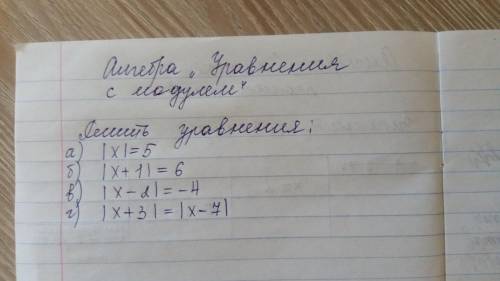 Алгебра „Уравнения
с модулем"
Решить уравнения:
а) |x|=5
б) |x+1|=6
в) |x-2|=-4
г) |x+3|=|x-7|